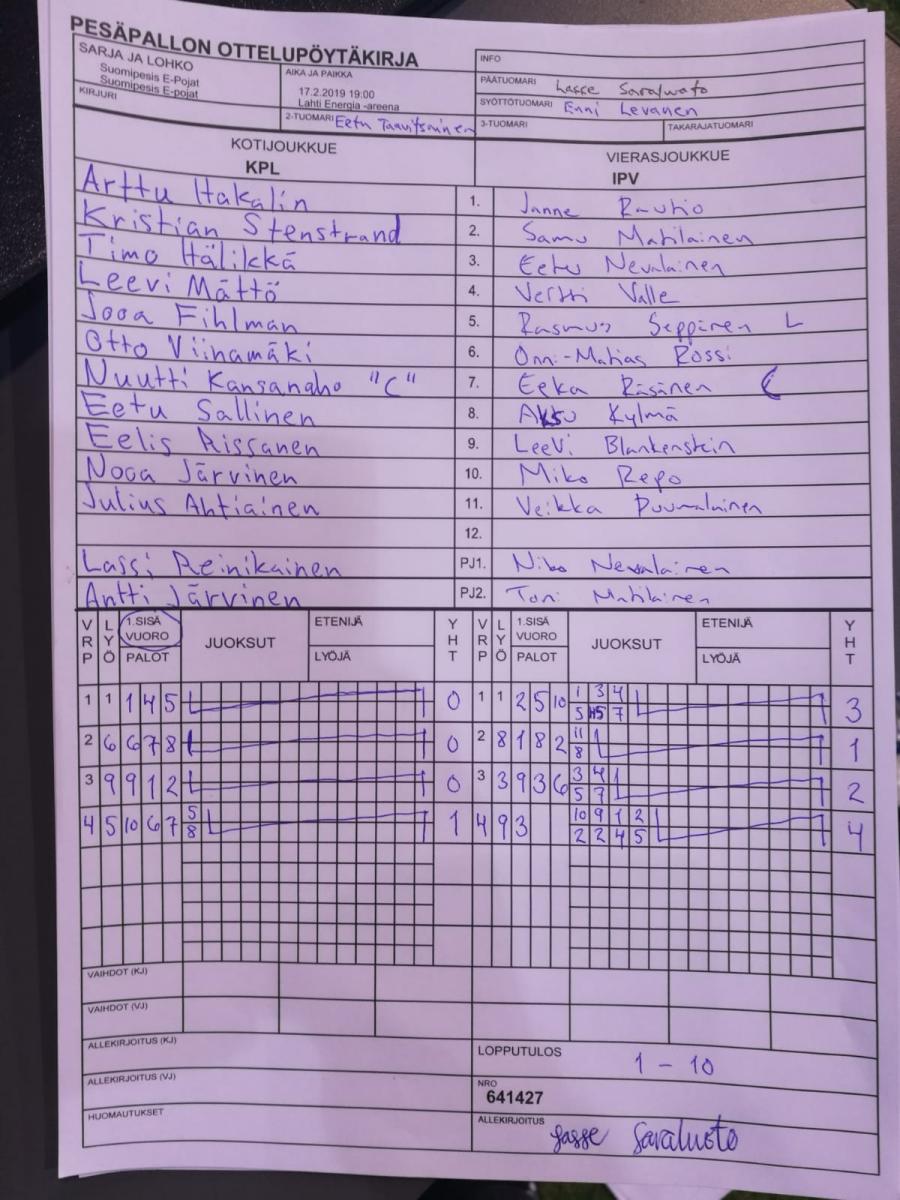 PESÄPALLON OTTELUPÖYTÄKIRJA
SARJA JA LOHKO
Suomipesis E-Pojat
Suomipesis E-pojat
KIRJURI
AIKA JA PAIKKA
17.2.2019 19:00
Lahti Energia -areena
2-TUOMARI Eetu Taavitsainen
INFO
PÄÄTUOMARI Lasse Savaluoto
SYÖTTÖTUOMARI Enni Levänen
3-TUOMARI
TAKARAJATUOMARI
KOTIJOUKKUE
KPL
VIERASJOUKKUE
IPV
Arttu Hakalin 1. Janne Rautio
Kristian Stenstrand 2. Samu Matilainen
Timo Hälikkä 3. Eetu Nevalainen
Leevi Mättö 4. Vertti Valle
Jooa Fihlman 5. Rasmus Seppänen L
Otto Viinamäki 6. Onni-Matias Rossi
Nuutti Kansanaho "C" 7. Eeka Räsänen C
Eetu Sallinen 8. Aksu Kylmä
Eelis Rissanen 9. Leevi Blankenstein
Nooa Järvinen 10. Miko Repo
Julius Ahtiainen 11. Veikka Puumalainen
12.
Lassi Reinikainen PJ1. Niko Nevalainen
Antti Järvinen PJ2. Toni Matilainen
VRP LYÖ 1.SISÄ VUORO PALOT JUOKSUT ETENIJÄ LYÖJÄ YHT VRP LYÖ 1.SISÄ VUORO PALOT JUOKSUT ETENIJÄ LYÖJÄ YHT
1 1 1 4 5 0 1 1 2 5 10 1 3 4 3
5 7
2 6 6 7 8 0 2 8 1 8 2 11 1
8
3 9 9 1 2 0 3 3 9 3 6 3 4 2
5 7
4 5 10 6 7 5 1 4 9 3 10 9 1 2 4
8 2 2 4 5
VAIHDOT (KJ)
VAIHDOT (VJ)
ALLEKIRJOITUS (KJ)
ALLEKIRJOITUS (VJ)
HUOMAUTUKSET
LOPPUTULOS 1 - 10
NRO
641427
ALLEKIRJOITUS Lasse Savaluoto